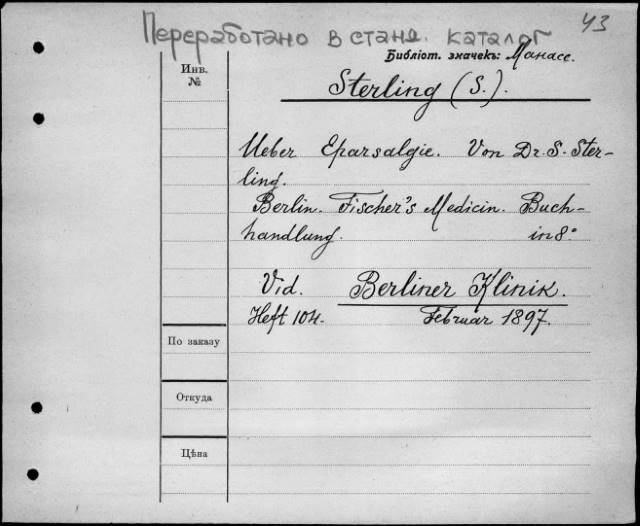 43
Переработано в станд. каталог
Библіот. значекъ: Манасс.
Инв. №
Sterling (S.).
Ueber Eparsalgie. Von Dr. S. Ster-
ling.
Berlin. Fischer's Medicin. Buch-
handlung. in 8°
Vid. Berliner Klinik.
Heft 104. Februar 1897.
По заказу
Откуда
Цѣна